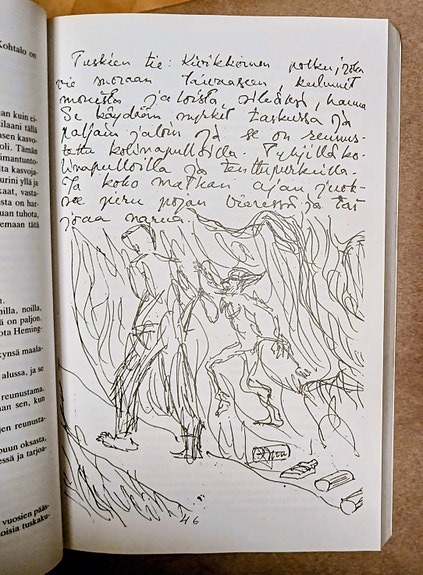 Kohtalo on
an kuin ei-
kilaani tällä
en kasvo-
oli. Tämän
imantunto-
ita kasvoja-
urini yllä ja
kaat, vasta-
sta on har-
uan tuhota,
emaan tätä
milla, noilla,
ä on paljon.
ota Heming-
kynsä maala-
alussa, ja se
reunustama.
aan sen, kun
jen reunusta-
puun oksasta,
essä ja tarjoa-
vuosien pääs-
oisia tuskaku-
Tuskien tie: Kivikkoinen polku, joka
vie suoraan taivaaseen, kulunut
monista jaloista sileäksi,
Se käydään nyrkit taskussa ja
paljain jaloin ja se on reunus-
tettu kolinapulloilla. Tyhjillä ko-
linapulloilla ja tenttupurkeilla.
Ja koko matkan ajan juok-
see piru pojan vieressä ja tar-
joaa narua
46